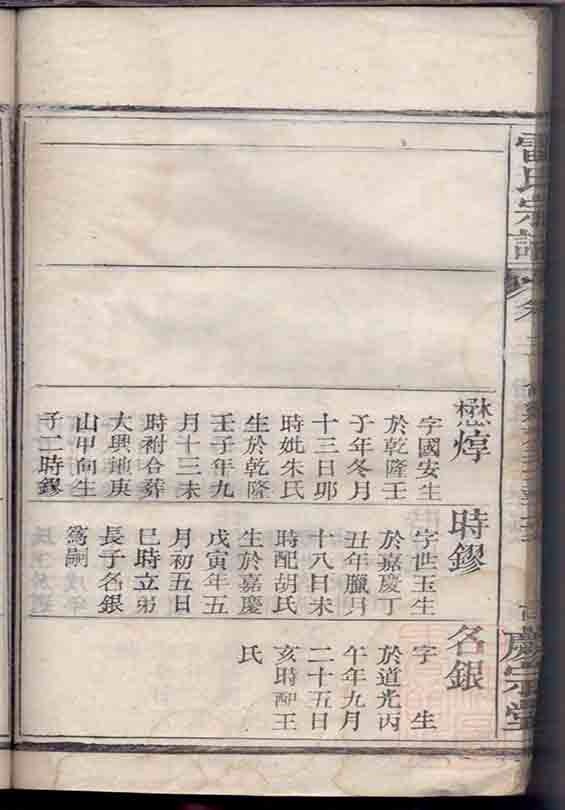 雷氏宗譜
慶宗堂
懋焞
字國安生
於乾隆壬
子年冬月
十三日卯
時妣朱氏
生於乾隆
壬子年九
月十三未
時祔合葬
大興地庚
山甲向生
子二時鏐
時鏐
字世玉生
於嘉慶丁
丑年臘月
十八日未
時配胡氏
生於嘉慶
戊寅年五
月初五日
巳時立弟
長子名銀
為嗣
名銀
字 生
於道光丙
午年九月
二十五日
亥時配王
氏